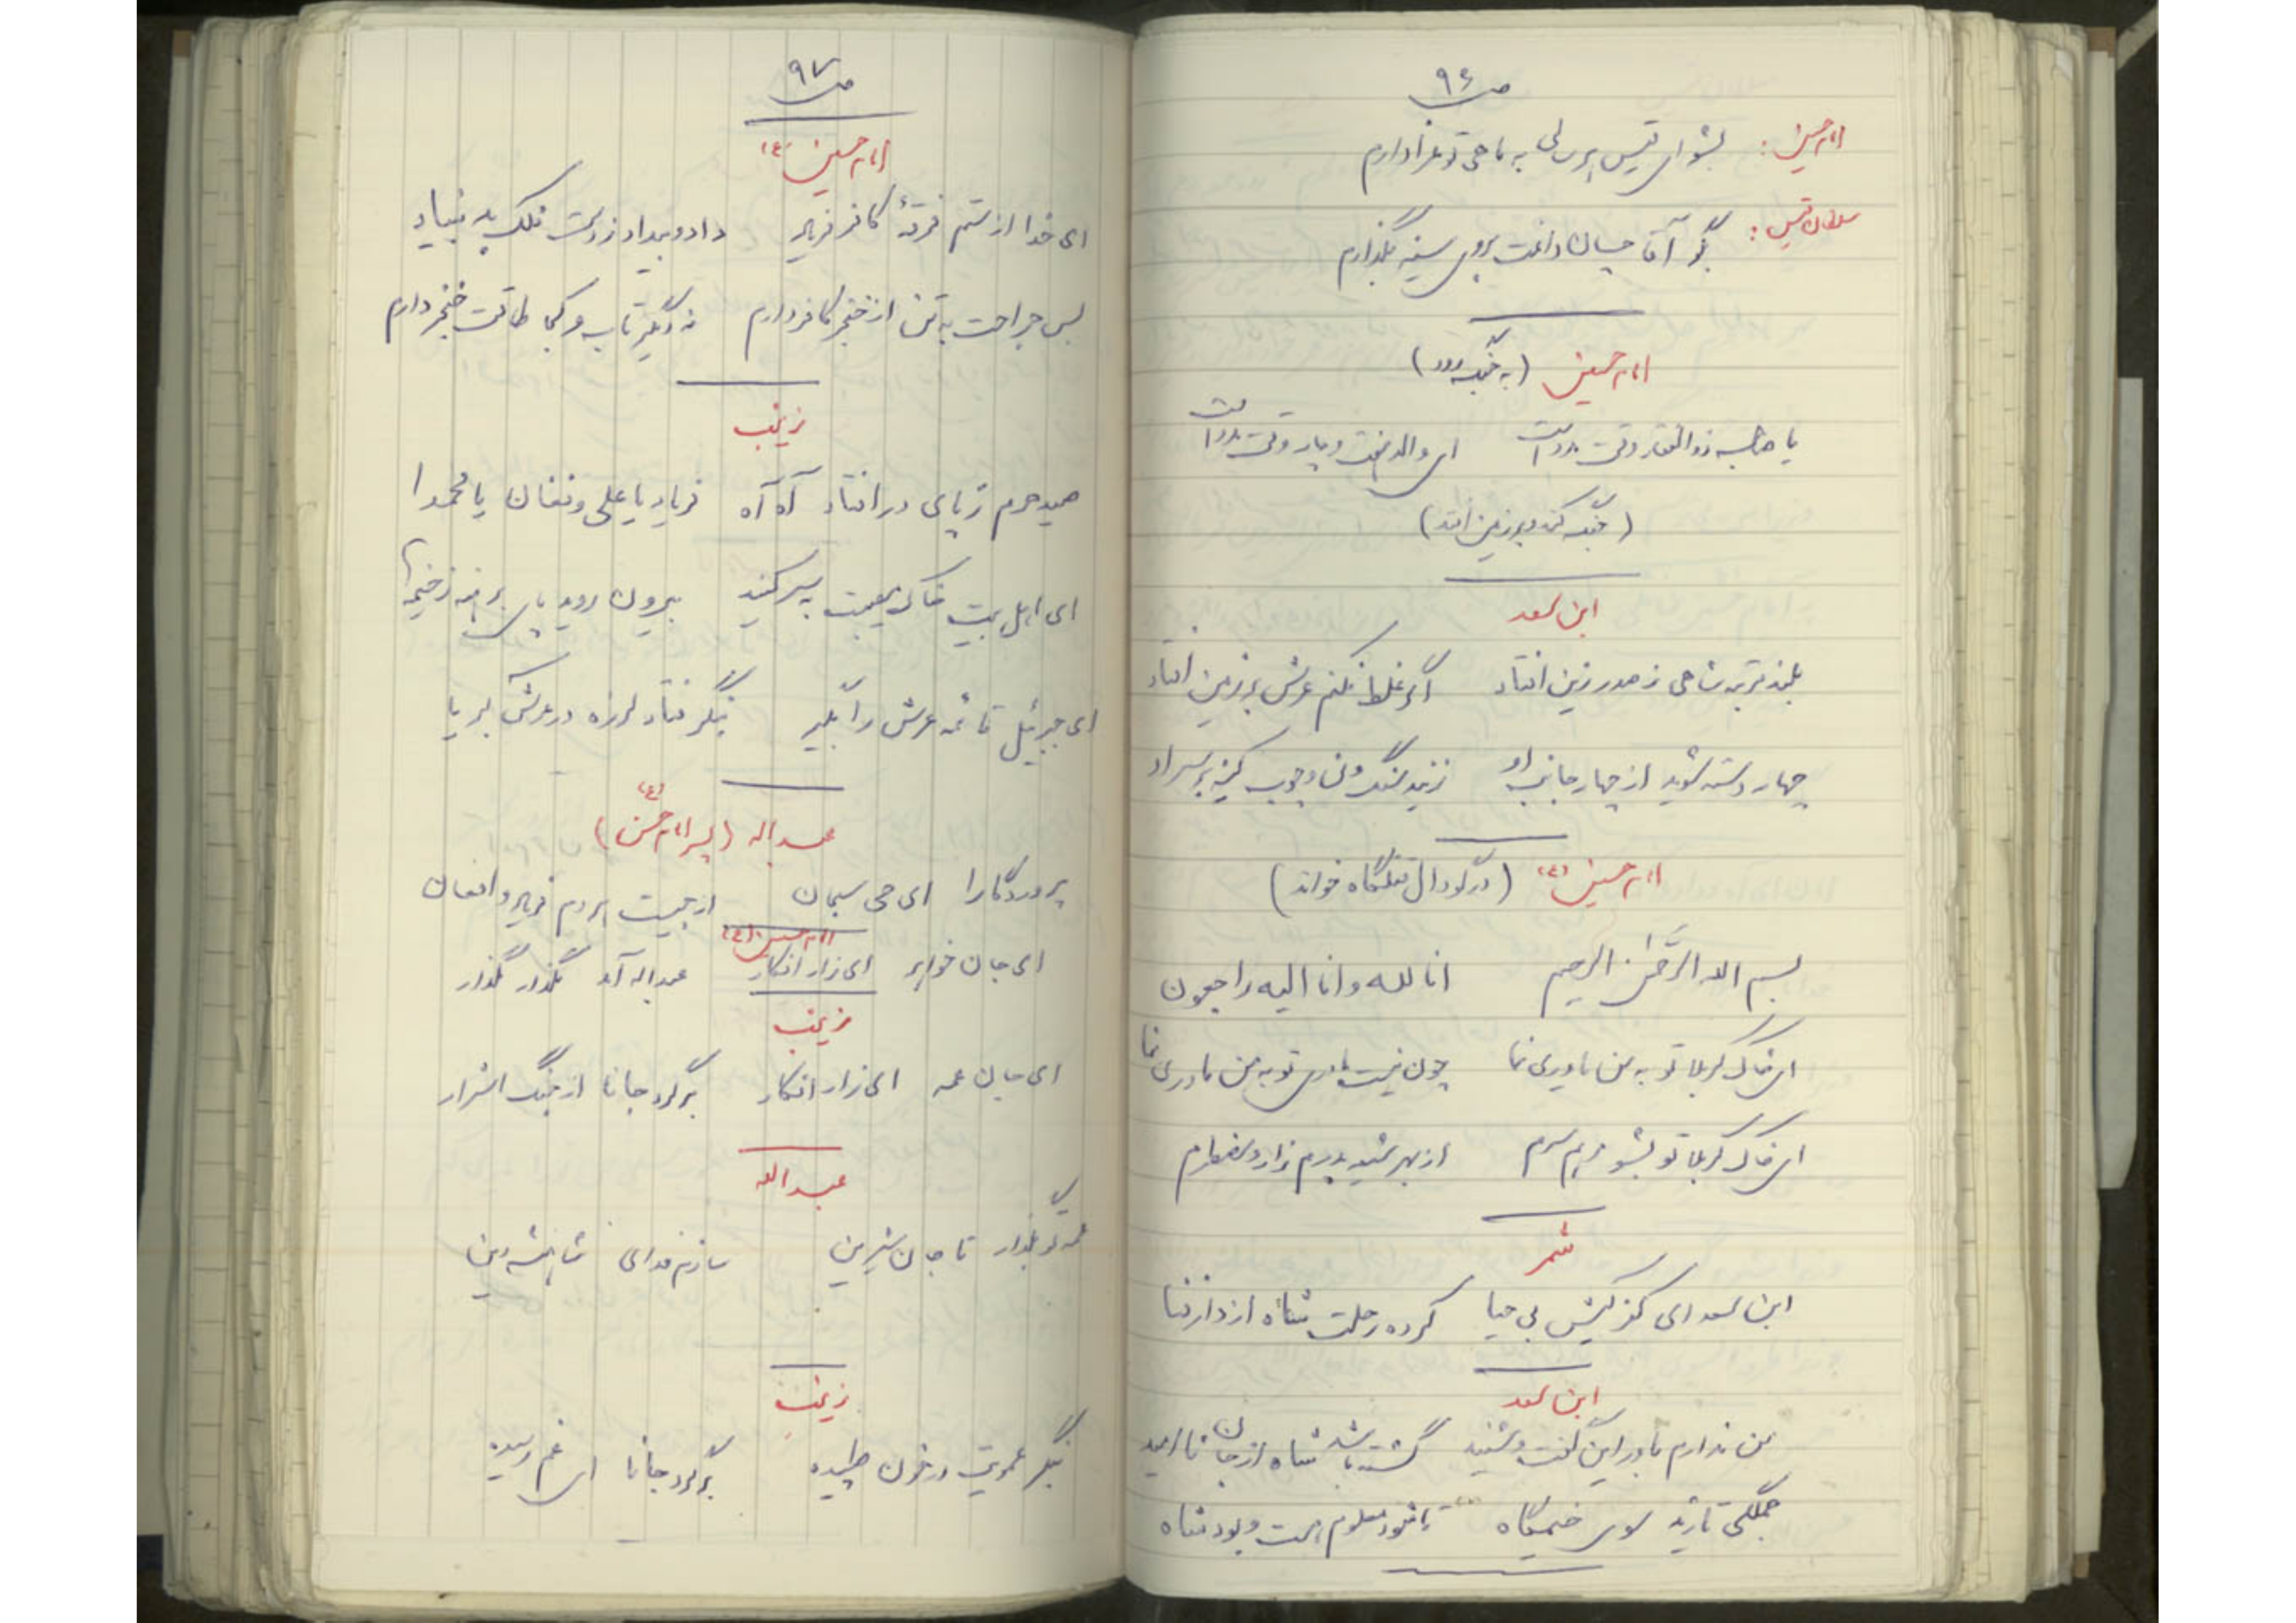 ص ۹۶
امام حسین: بشنو ای قیس پرسش به ناحق تو عزادارم
سلطان قیس: بگو آقا چسان داغت بروی سینه بگذارم
امام حسین (به جنگ رود)
یا صاحب ذوالفقار وقت مدد است ای والد هفت و چار وقت مدد است
(جنگ کند و بر زمین افتد)
ابن سعد
بلند مرتبه شاهی ز صدر زین افتاد اگر غلط نکنم عرش بر زمین افتاد
چهار دسته شوید از چهار جانب او زنید سنگ و چوب کینه بر سر او
امام حسین (ع) (در گودال قتلگاه خواند)
بسم الله الرحمن الرحیم انا لله و انا الیه راجعون
ای خاک کربلا تو به من یاوری نما چون نیست مادری تو به من مادری نما
ای خاک کربلا تو بشو مرهم سرم از بهر
شمر
ابن سعد ای کفر کیش بی حیا کرده رحلت شاه از دار فنا
ابن سعد
من ندارم باور این گفت و شنید گشته باشد شاه از جان ناامید
جملگی تازید سوی خیمگاه تا شود معلوم هست و بود شاه
ص ۹۷
امام حسین (ع)
ای خدا از ستم فرقهٔ کافر فریاد داد و بیداد ز دست فلک بد بنیاد
بس جراحت به تن از خنجر کافر دارم نه دگر تاب و کجا طاقت خنجر دارم
زینب
صید حرم ز پای در افتاد آه آه فریاد یا علی و فغان یا محمدا
ای اهل بیت خاک یتیمی بسر کنید بیرون روید پای برهنه ز خیمه‌ها
ای جبرئیل قائمه عرش را بگیر بنگر فتاد لرزه در عرش کبریا
عبداله (پسر امام حسن (ع))
پروردگارا ای حی سبحان از چیست مردم فریاد و افغان
امام حسین (ع)
ای جان خواهر ای زار افکار عبداله آمد نگذار نگذار
زینب
ای جان عمه ای زار افکار برگرد جانا از جنگ اشرار
عبدالله
عمه تو بگذار تا جان شیرین سازم فدای شاهنشه دین
زینب
بنگر عمویت در خون طپیده برگرد جانا ای غم رسیده